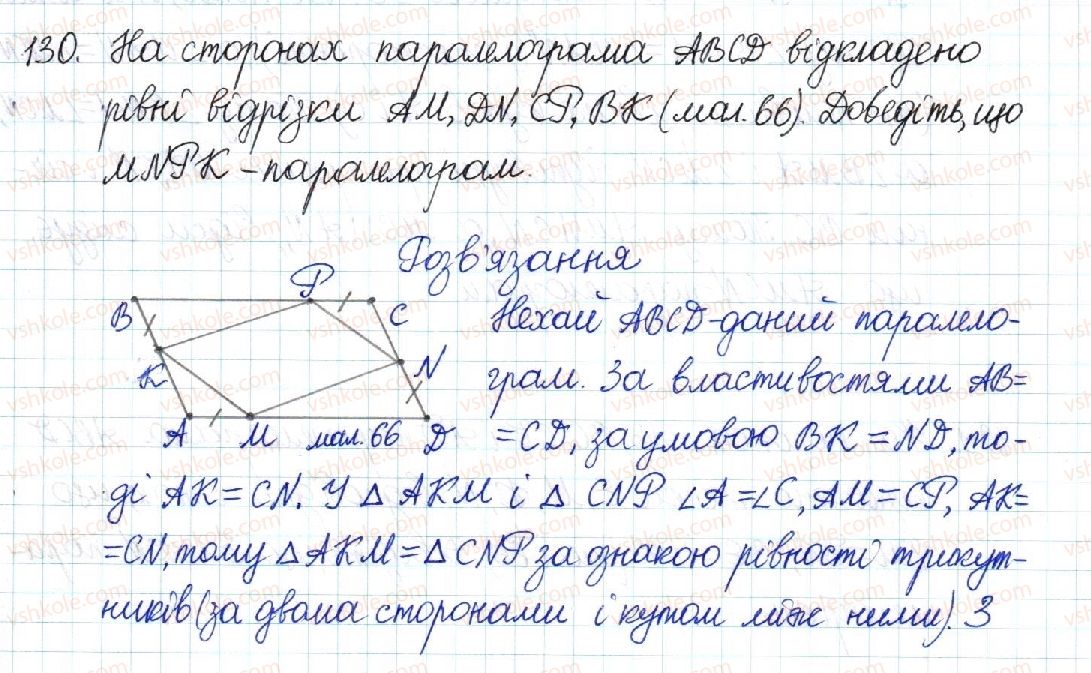 130. На сторонах паралелограма ABCD відкладено
рівні відрізки AM, DN, CP, BK (мал. 66). Доведіть, що
MNPK – паралелограм.
Розв'язання
B P C K N A M мал. 66 D
Нехай ABCD-даний паралело-
грам. За властивостями AB=
=CD, за умовою BK = ND, то-
ді AK = CN. У △ AKM і △ CNP ∠A =∠C, AM = CP, AK=
=CN, тому △ AKM = △ CNP за ознакою рівності трикут-
ників (за двома сторонами і кутом між ними). З
vshkole.com